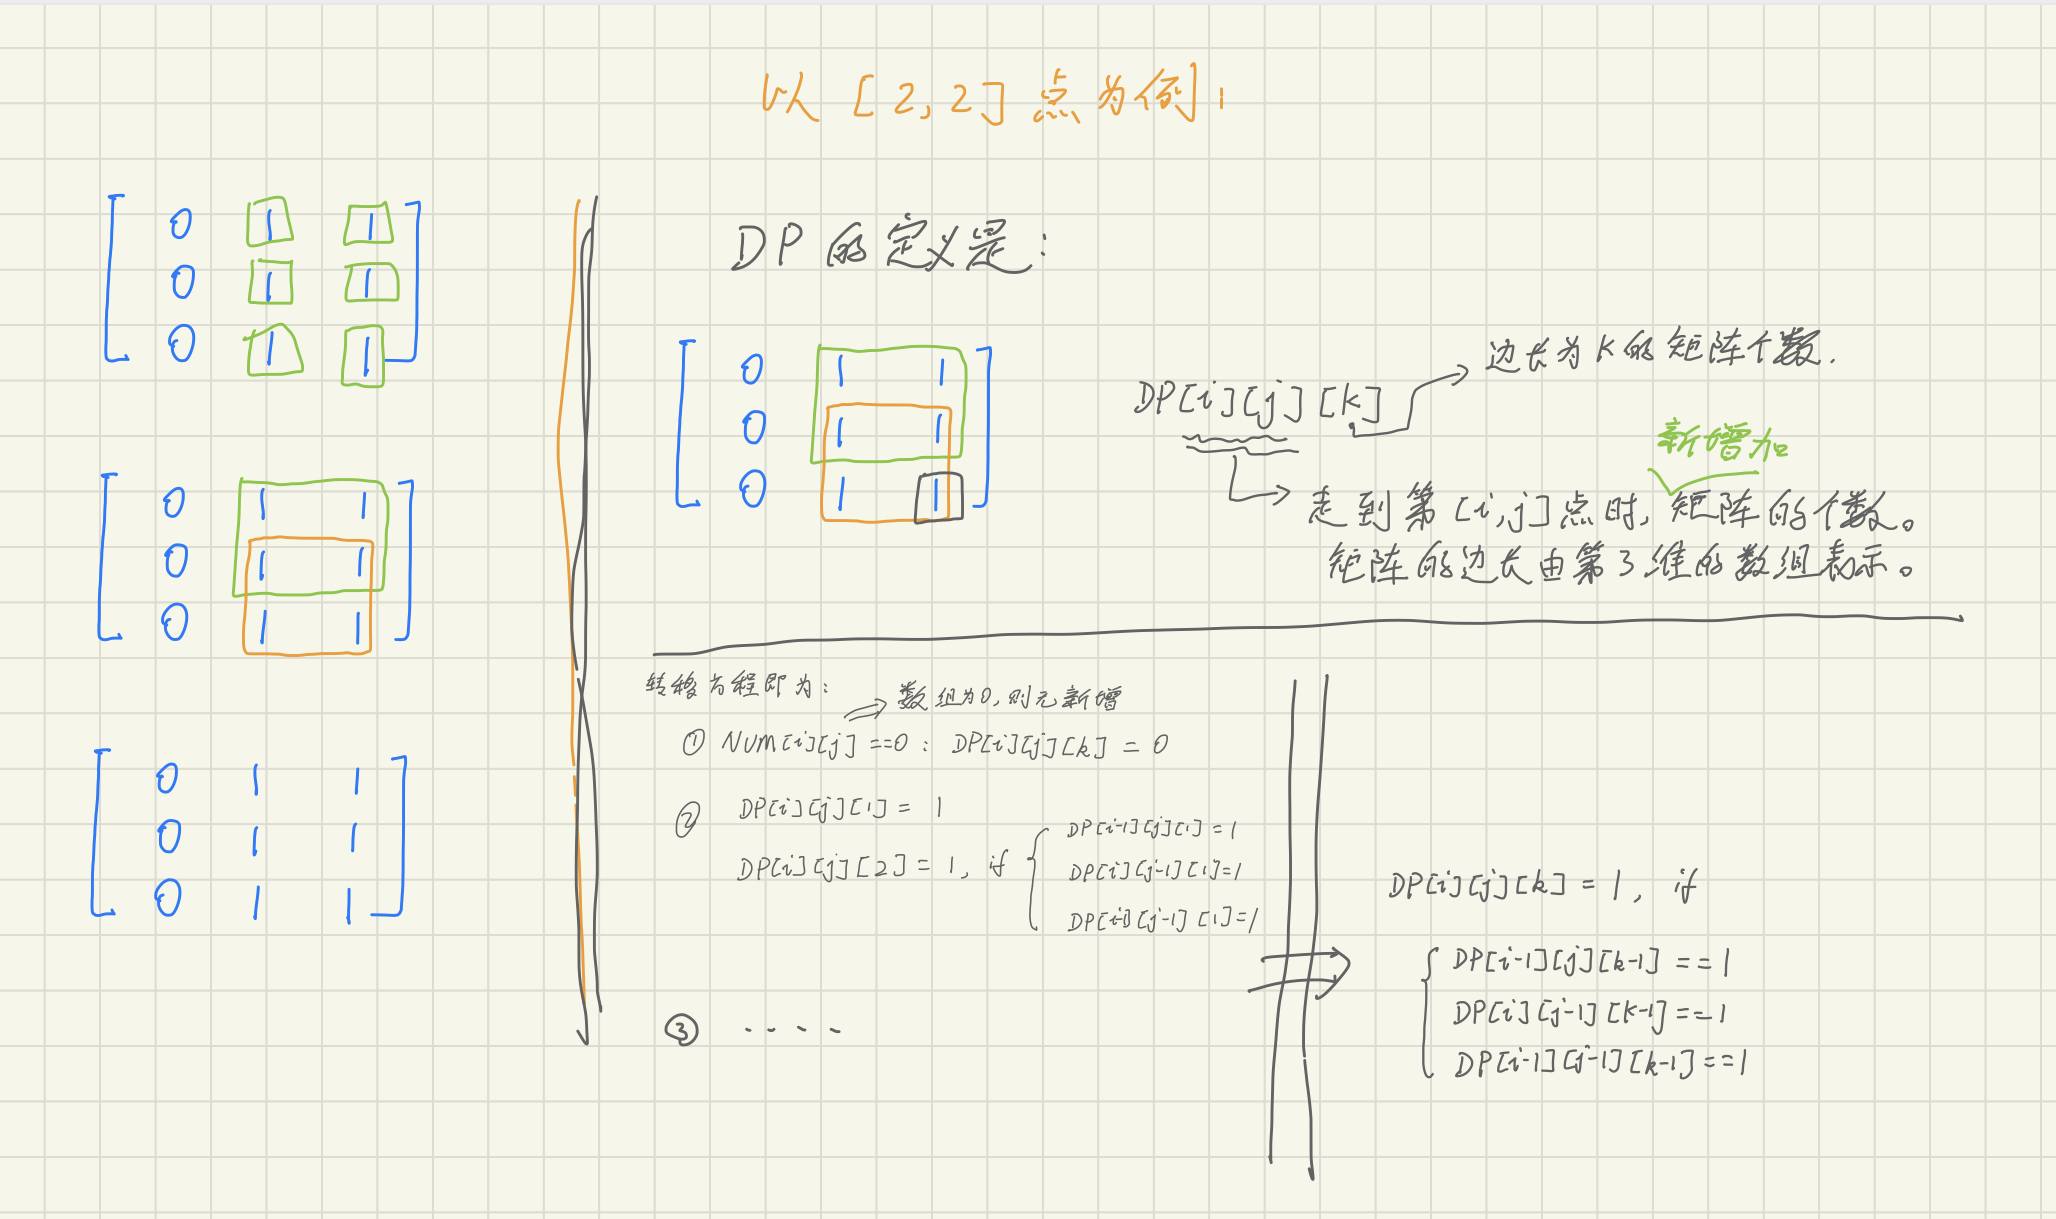 以 [2,2] 点为例:
0 1 1
0 1 1
0 1 1
0 1 1
0 1 1
0 1 1
0 1 1
0 1 1
0 1 1
DP 的定义是:
0 1 1
0 1 1
0 1 1
DP[i][j][k]
边长为K的矩阵个数.
新增加
走到第[i,j]点时,矩阵的个数。
矩阵的边长由第3维的数组表示。
转移方程即为:
数组为0,则无新增
① NUM[i][j]==0: DP[i][j][k] = 0
② DP[i][j][1] = 1
DP[i][j][2] = 1, if
DP[i-1][j][1]=1
DP[i][j-1][1]=1
DP[i-1][j-1][1]=1
③ ....
DP[i][j][k] = 1, if
DP[i-1][j][k-1] ==1
DP[i][j-1][k-1]==1
DP[i-1][j-1][k-1]==1